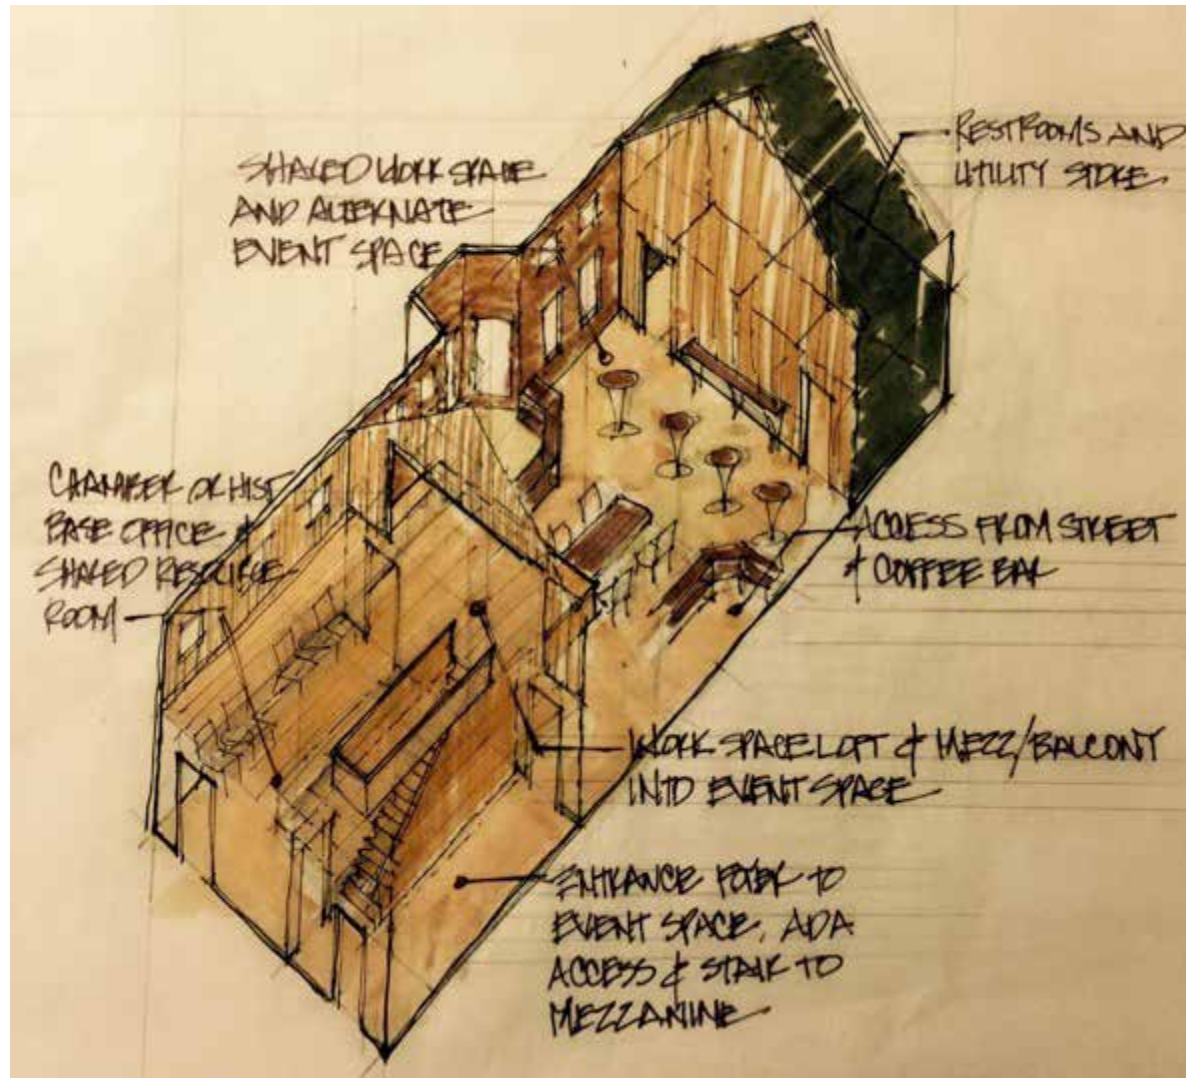 SHARED WORK SPACE
AND ALTERNATE
EVENT SPACE
RESTROOMS AND
UTILITY STORE
CHAMBER OR HIST
BASE OFFICE &
SHARED RESOURCE
ROOM
ACCESS FROM STREET
& COFFEE BAR
WORK SPACE LOFT & MEZZ/BALCONY
INTO EVENT SPACE
ENTRANCE FOYER TO
EVENT SPACE, ADA
ACCESS & STAIR TO
MEZZANINE